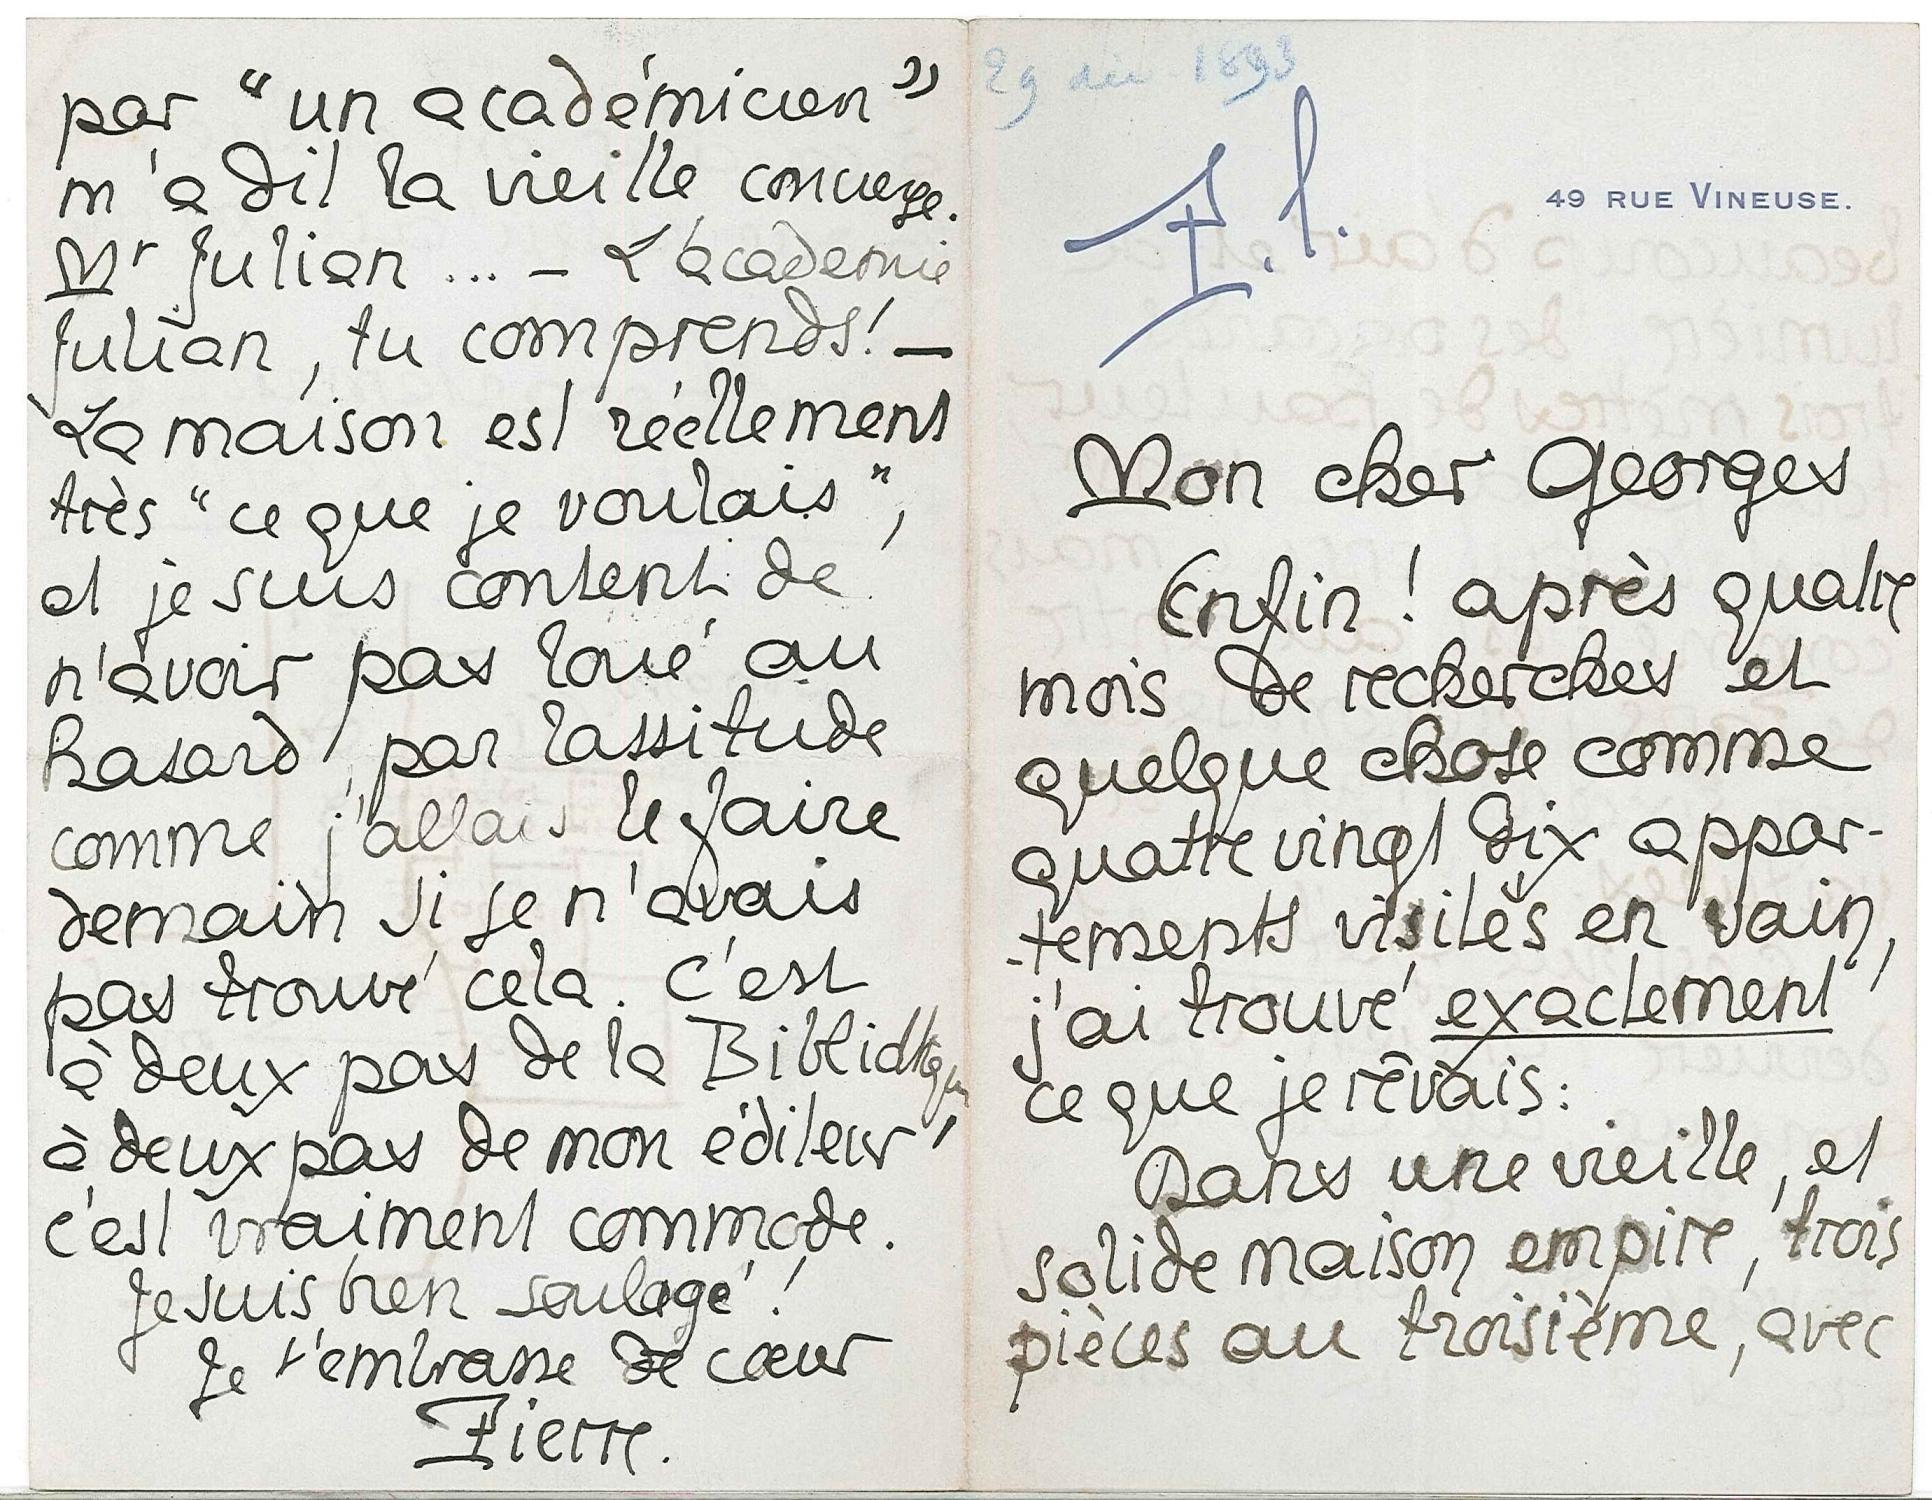 29 déc. 1893
P. L.
49 RUE VINEUSE.
Mon cher Georges
Enfin ! après quatre
mois de recherches et
quelque chose comme
quatre vingt dix appar-
-tements visités en vain,
j'ai trouvé exactement
ce que je rêvais :
Dans une vieille, et
solide maison empire, trois
pièces au troisième, avec
par "un académicien"
m'a dit la vieille concierge.
Mr Julian ... — L'académie
Julian, tu comprends ! —
La maison est réellement
très "ce que je voulais",
et je suis content de
n'avoir pas loué au
hasard, par lassitude
comme j'allais le faire
demain si je n'avais
pas trouvé cela. C'est
à deux pas de la Bibliothèque
à deux pas de mon éditeur,
c'est vraiment commode.
Je suis bien soulagé !
Je t'embrasse de cœur
Pierre.